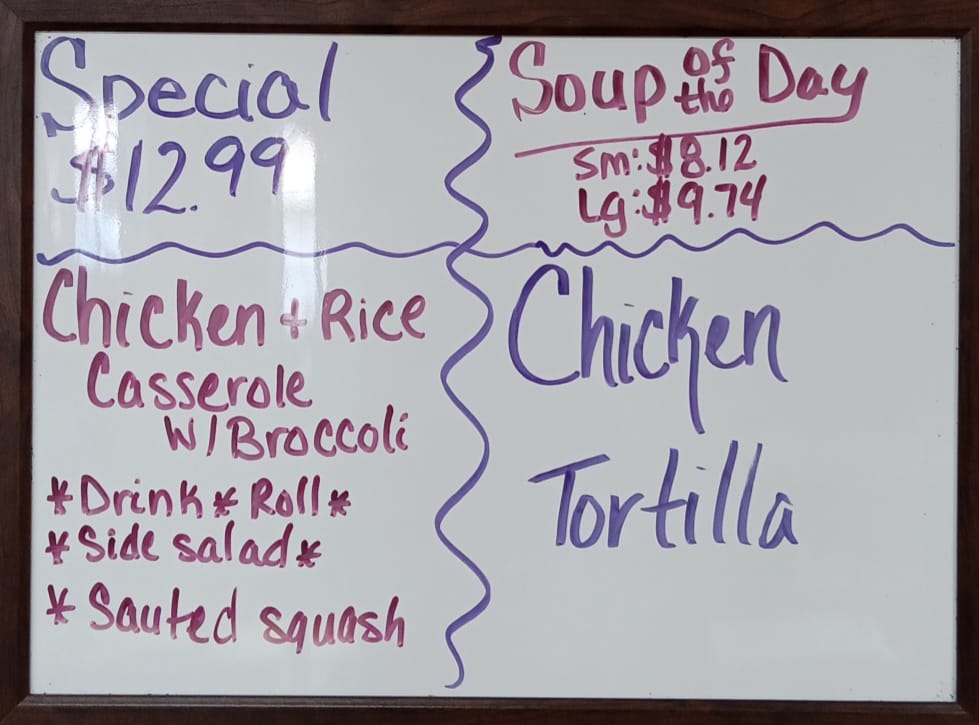 Special
$12.99
Chicken + Rice
Casserole
W/Broccoli
*Drink * Roll *
*Side salad *
* Sauted squash
Soup of the Day
Sm: $8.12
Lg: $9.74
Chicken
Tortilla